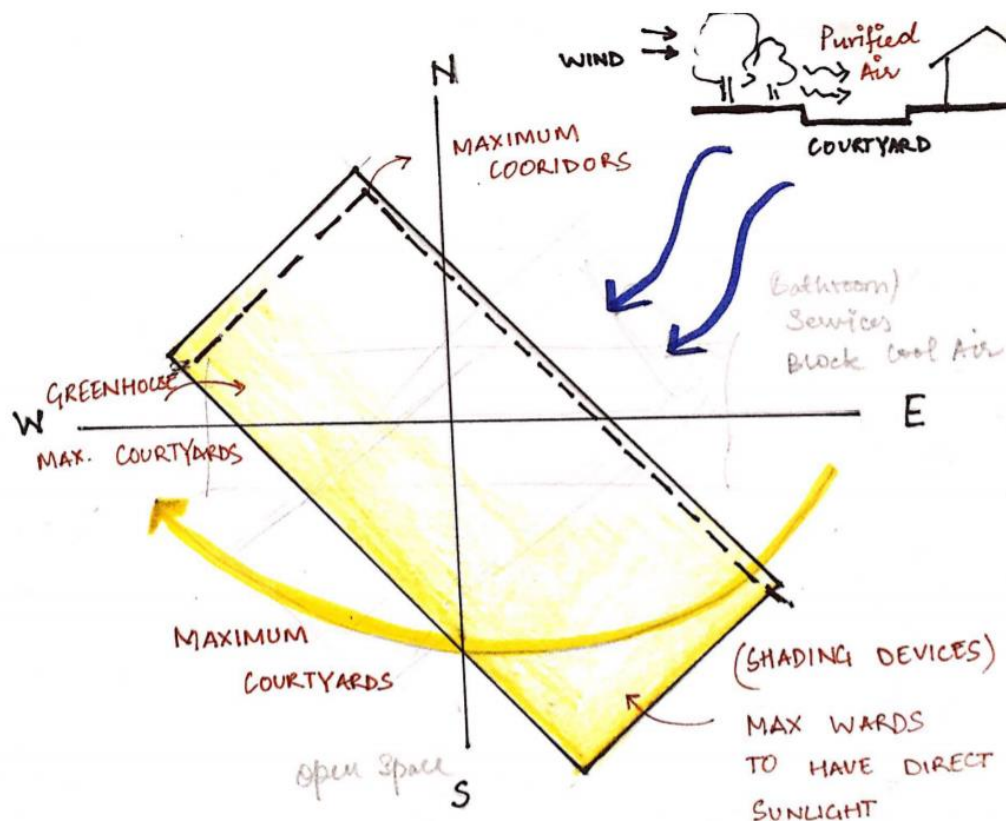 WIND
Purified
Air
COURTYARD
N
MAXIMUM
COORIDORS
Bathroom/
Services
Block Cool Air
GREENHOUSE
W
E
MAX. COURTYARDS
MAXIMUM
COURTYARDS
(SHADING DEVICES)
MAX WARDS
TO HAVE DIRECT
SUNLIGHT
Open Space
S